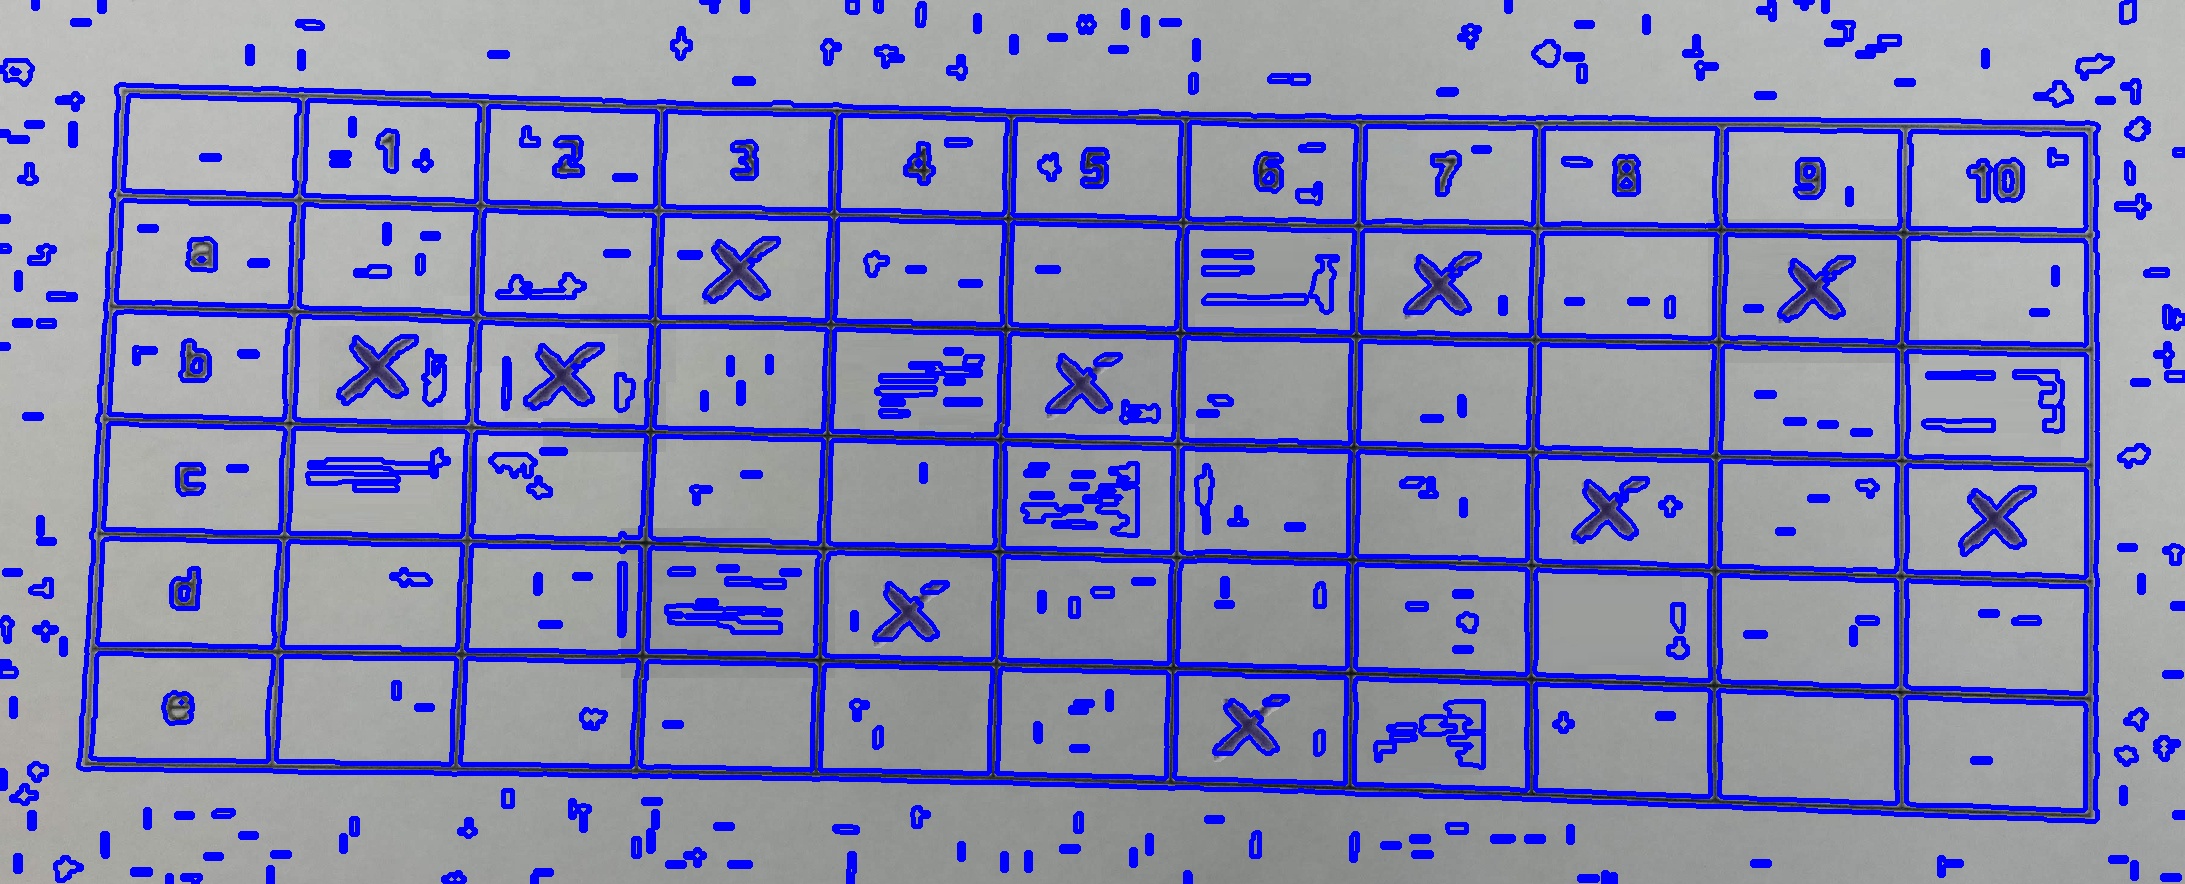 1 2 3 4 5 6 7 8 9 10
a X X X
b X X X
c X X
d X
e X